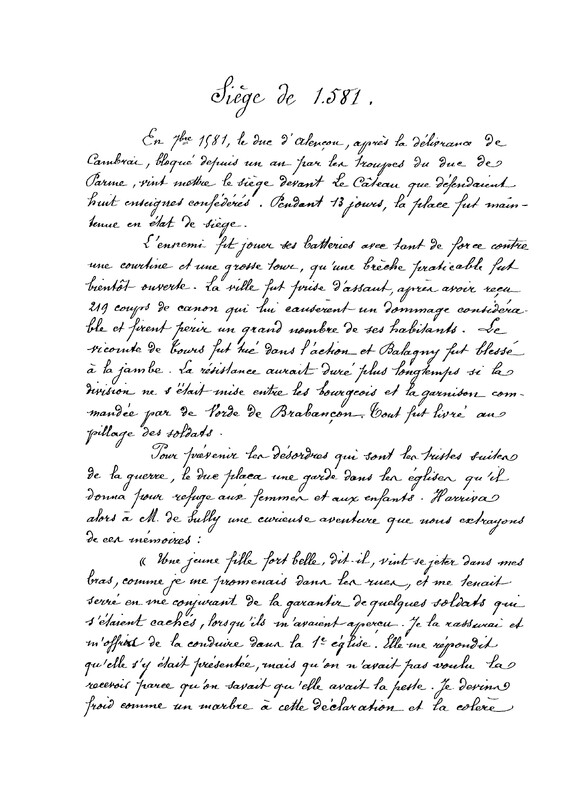 Siège de 1.581.
En 7bre 1581, le duc d'alençon, après la délivrance de
Cambrai, bloqué depuis un an par les troupes du duc de
Parme, vint mettre le siège devant Le Câteau que défendaient
huit enseignes confédérés. Pendant 13 jours, la place fut main-
tenue en état de siège.
L'ennemi fit jouer ses batteries avec tant de force contre
une courtine et une grosse tour, qu'une brèche praticable fut
bientôt ouverte. La ville fut prise d'assaut, après avoir reçu
219 coups de canon qui lui causèrent un dommage considéra
ble et firent périr un grand nombre de ses habitants. Le
vicomte de Tours fut tué dans l'action et Balagny fut blessé
à la jambe. La résistance aurait duré plus longtemps si la
division ne s'était mise entre les bourgeois et la garnison com-
mandée par de Vorde de Brabançon. Tout fut livré au
pillage des soldats.
Pour prévenir les désordres qui sont les tristes suites
de la guerre, le duc plaça une garde dans les églises qu'il
donna pour refuge aux femmes et aux enfants. Il arriva
alors à M. de Sully une curieuse aventure que nous extrayons
de ces mémoires :
« Une jeune fille fort belle, dit-il, vint se jeter dans mes
bras, comme je me promenais dans les rues, et me tenait
serré en me conjurant de la garantir de quelques soldats qui
s'étaient cachés, lorsqu'ils m'avaient aperçu. Je la rassurai et
m'offris de la conduire dans la 1e église. Elle me répondit
qu'elle s'y était présentée, mais qu'on n'avait pas voulu la
recevoir parce qu'on savait qu'elle avait la peste. Je devins
froid comme un marbre à cette déclaration et la colère